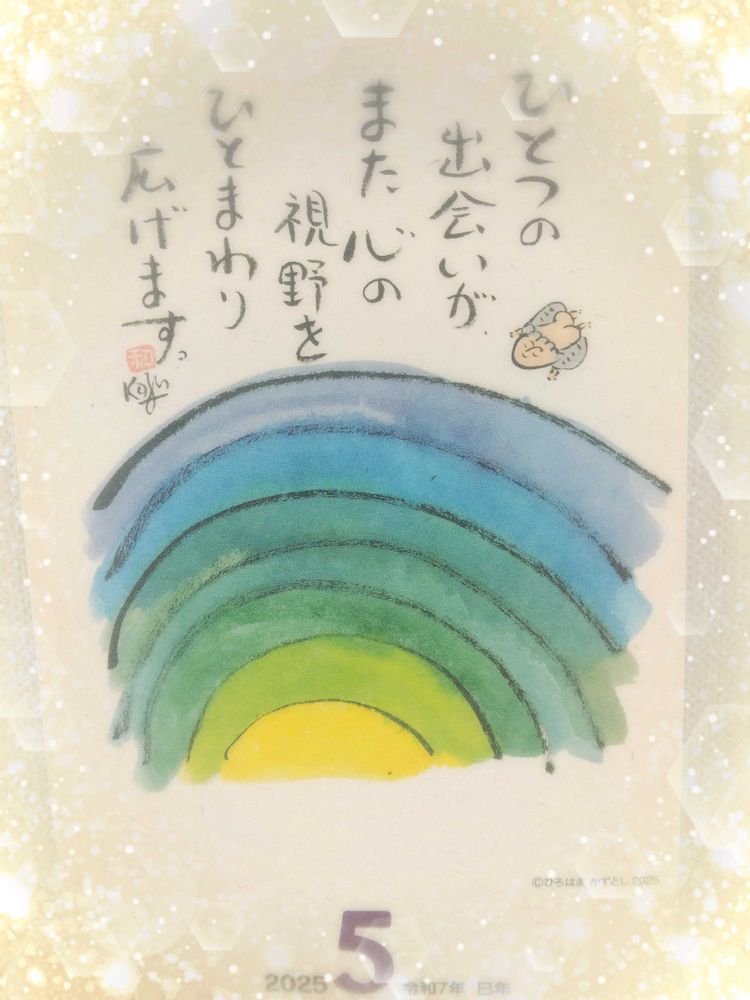 ひとつの
出会いが、
また心の
視野を
ひとまわり
広げます。
和
©ひろはま かずとし 2025
5
2025
令和7年 巳年